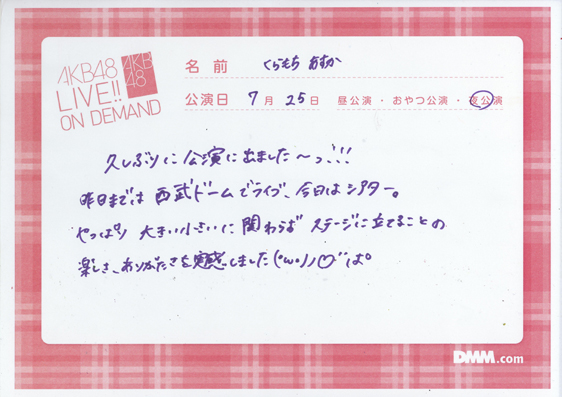 AKB48
LIVE!!
ON DEMAND
AKB
48
名前 くらもち あすか
公演日 7月25日 昼公演・おやつ公演・夜公演
久しぶりに公演に出ました〜っ!!!
昨日までは西武ドームでライブ、今日はシアター。
やっぱり 大きい小さいに関わらず ステージに立てることの
楽しさ、ありがたさを実感しました(*'ω'*)ノ♡ ぱ°
DMM.com